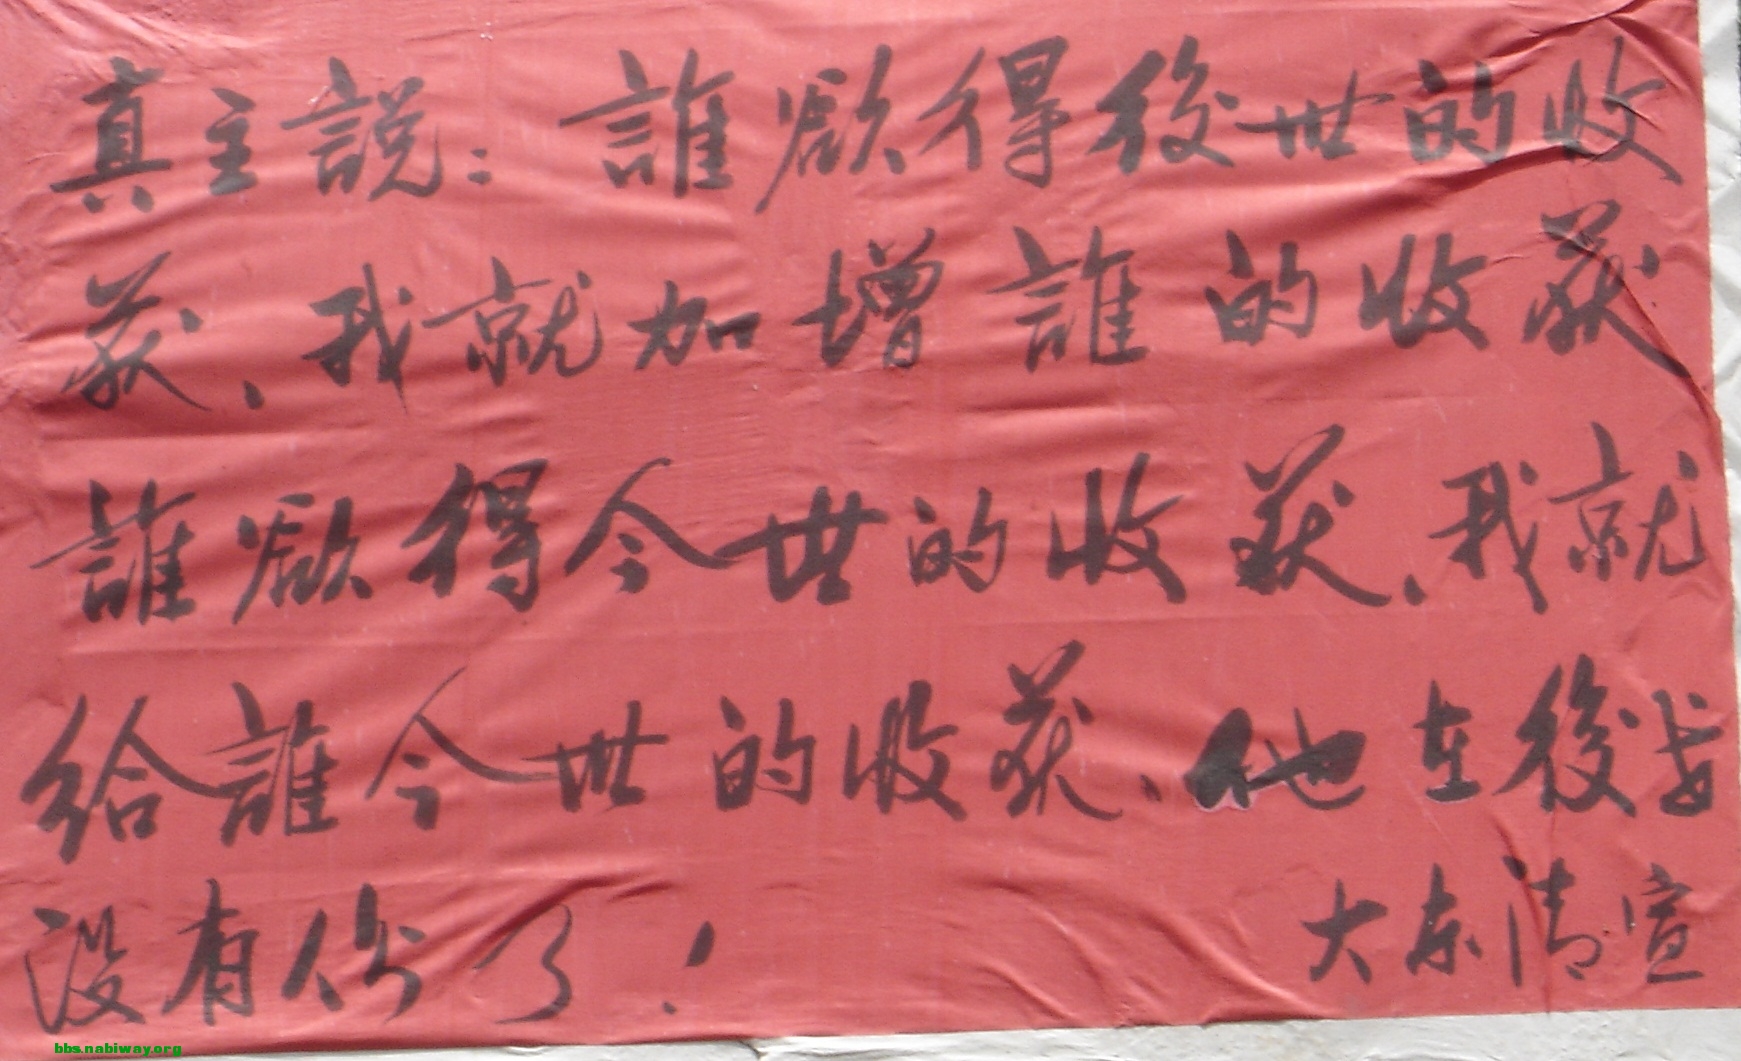 真主説：誰欲得後世的收
获、我就加增誰的收获
誰欲得今世的收获、我就
給誰今世的收获、他在後世
没有份了！
大东清宣
bbs.nabiway.org